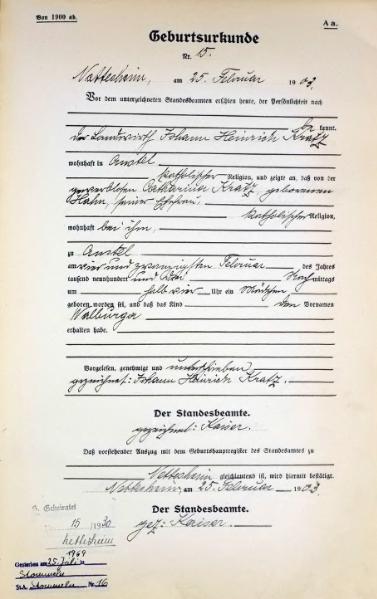 Von 1900 ab.
A a.
Geburtsurkunde
Nr. 15.
Nettesheim, am 25. Februar 1903.
Vor dem unterzeichneten Standesbeamten erschien heute, der Persönlichkeit nach
kannt,
der Landwirth Johann Heinrich Kratz
wohnhaft in Anstel
katholischer Religion, und zeigte an, daß von der
gewerblosen Catharina Kratz, geborenen
Hahn, seiner Ehefrau,
katholischer Religion,
wohnhaft bei ihm,
zu Anstel
am vier und zwanzigsten Februar des Jahres
tausend neunhundert und drei Nachmittags
um halb vier Uhr ein Mädchen
geboren worden sei, und daß das Kind den Vornamen
Walburga
erhalten habe.
Vorgelesen, genehmigt und unterschrieben
gezeichnet: Johann Heinrich Kratz.
Der Standesbeamte.
gezeichnet: Kaiser.
Daß vorstehender Auszug mit dem Geburtshauptregister des Standesamtes zu
Nettesheim gleichlautend ist, wird hiermit bestätigt.
Nettesheim, am 25. Februar 1903.
Der Standesbeamte.
gez: Kaiser.
15 1930
Nettesheim
1969
Gestorben am 25. Juli
Stommeln
StA Stommeln Nr. 16